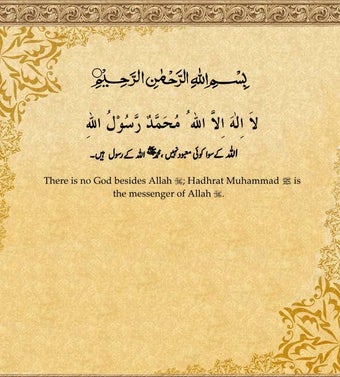 بِسْمِ اللهِ الرَّحْمٰنِ الرَّحِيْمِ
لَا اِلٰهَ اِلَّا اللهُ مُحَمَّدٌ رَّسُوْلُ اللهِ
اللہ کے سوا کوئی معبود نہیں، محمدﷺ اللہ کے رسول ہیں۔
There is no God besides Allah ; Hadhrat Muhammad ﷺ is
the messenger of Allah .